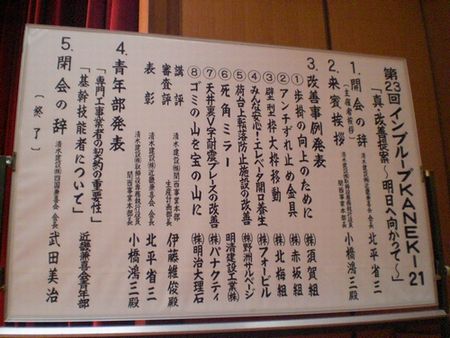 第23回インプルーブKANEKI-21
「真・改善提案～明日へ向かって～」
1. 開会の辞 清水建設㈱近畿兼喜会 会長 北平省三
(主催者挨拶)
2. 来賓挨拶 関西事業本部長 小橋鴻三殿
3. 改善事例発表
① 歩掛の向上のために ㈱須賀組
② アンチずれ止め金具 ㈱赤坂組
③ 壁型枠大枠移動 ㈱北梅組
④ みんな安心！エレベータ開口養生 ㈱フォービル
⑤ 荷台上転落防止施設の改善 ㈱野洲サルベージ
⑥ 死角ミラー 明清建設工業㈱
⑦ 天井裏V字耐震ブレースの改善 ㈱パナクティ
⑧ ゴミの山を宝の山に ㈱明治大理石
審査評 清水建設㈱関西事業本部 生産計画部長 伊藤維俊殿
講評
表彰 清水建設㈱近畿兼喜会 会長 北平省三
関西事業本部長 小橋鴻三殿
4. 青年部発表
「専門工事業者の契約の重要性」
「基幹技能者について」 近畿兼喜会青年部
5. 閉会の辞 清水建設㈱四国兼喜会 会長 武田美治
(終了)